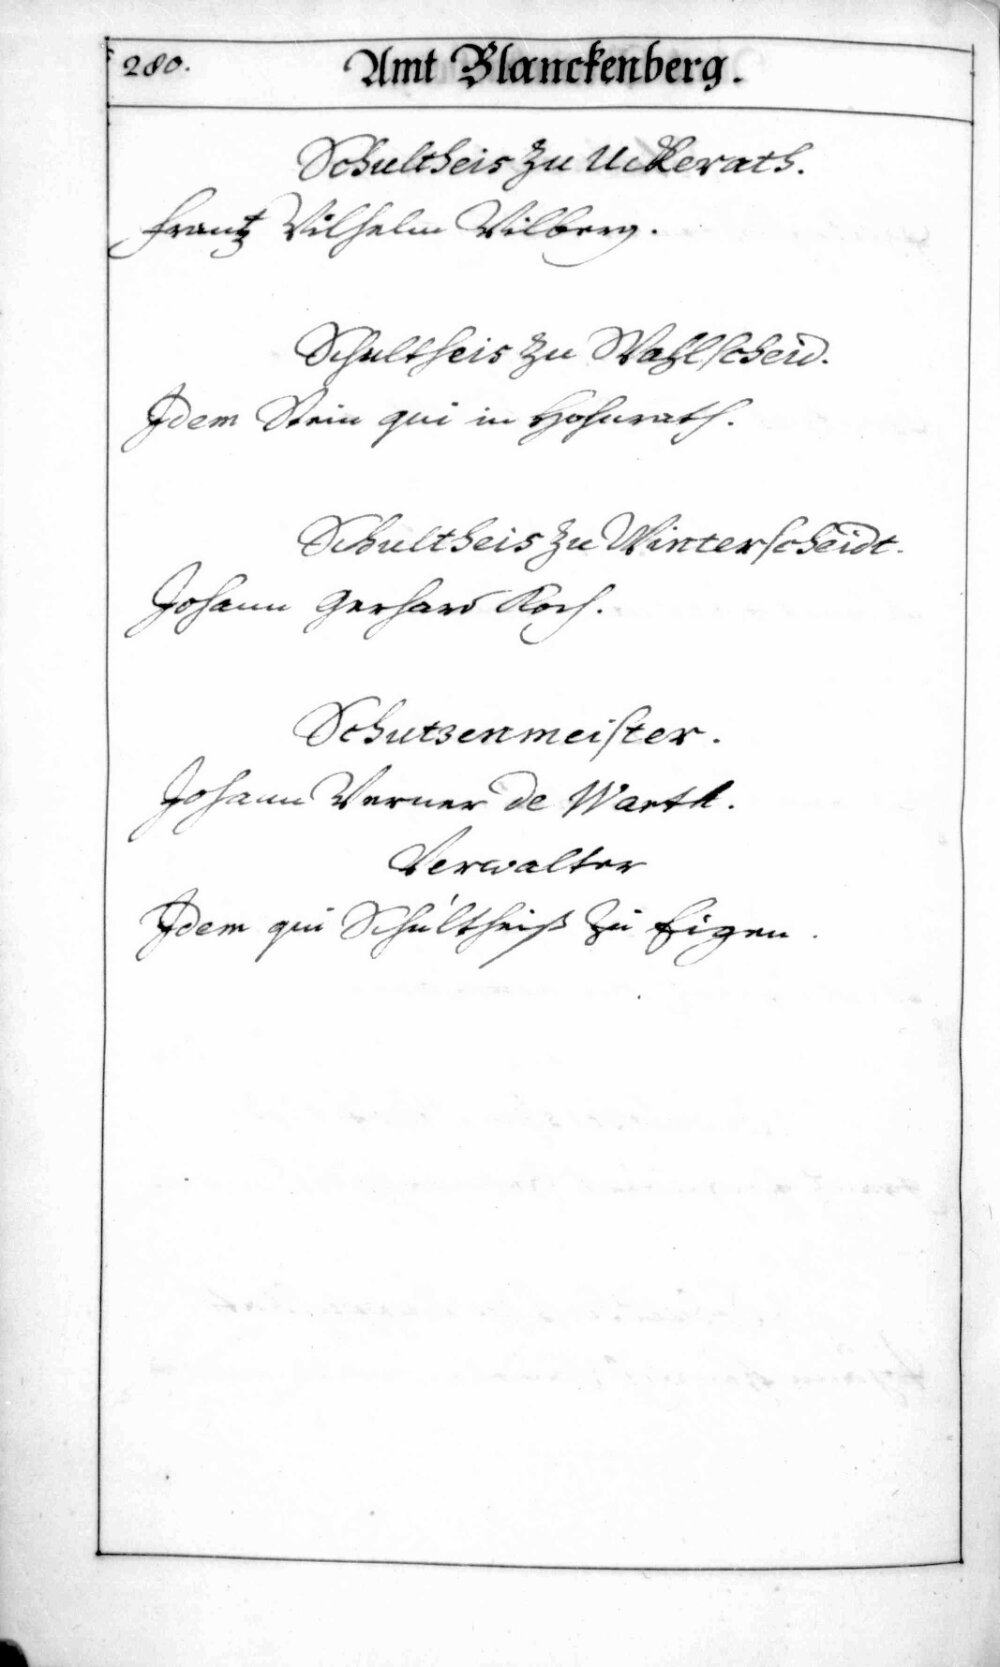 280.
Amt Blanckenberg.
Schultheis zu Uckerath.
Frantz Wilhelm Wilberg.
Schultheis zu Wahlscheid.
Idem Stein qui in Hohnrath.
Schultheis zu Winterscheidt.
Johann Gerhard Koch.
Schutzenmeister.
Johann Werner de Warth.
Verwalter
Idem qui Schultheiß zu Eigen.